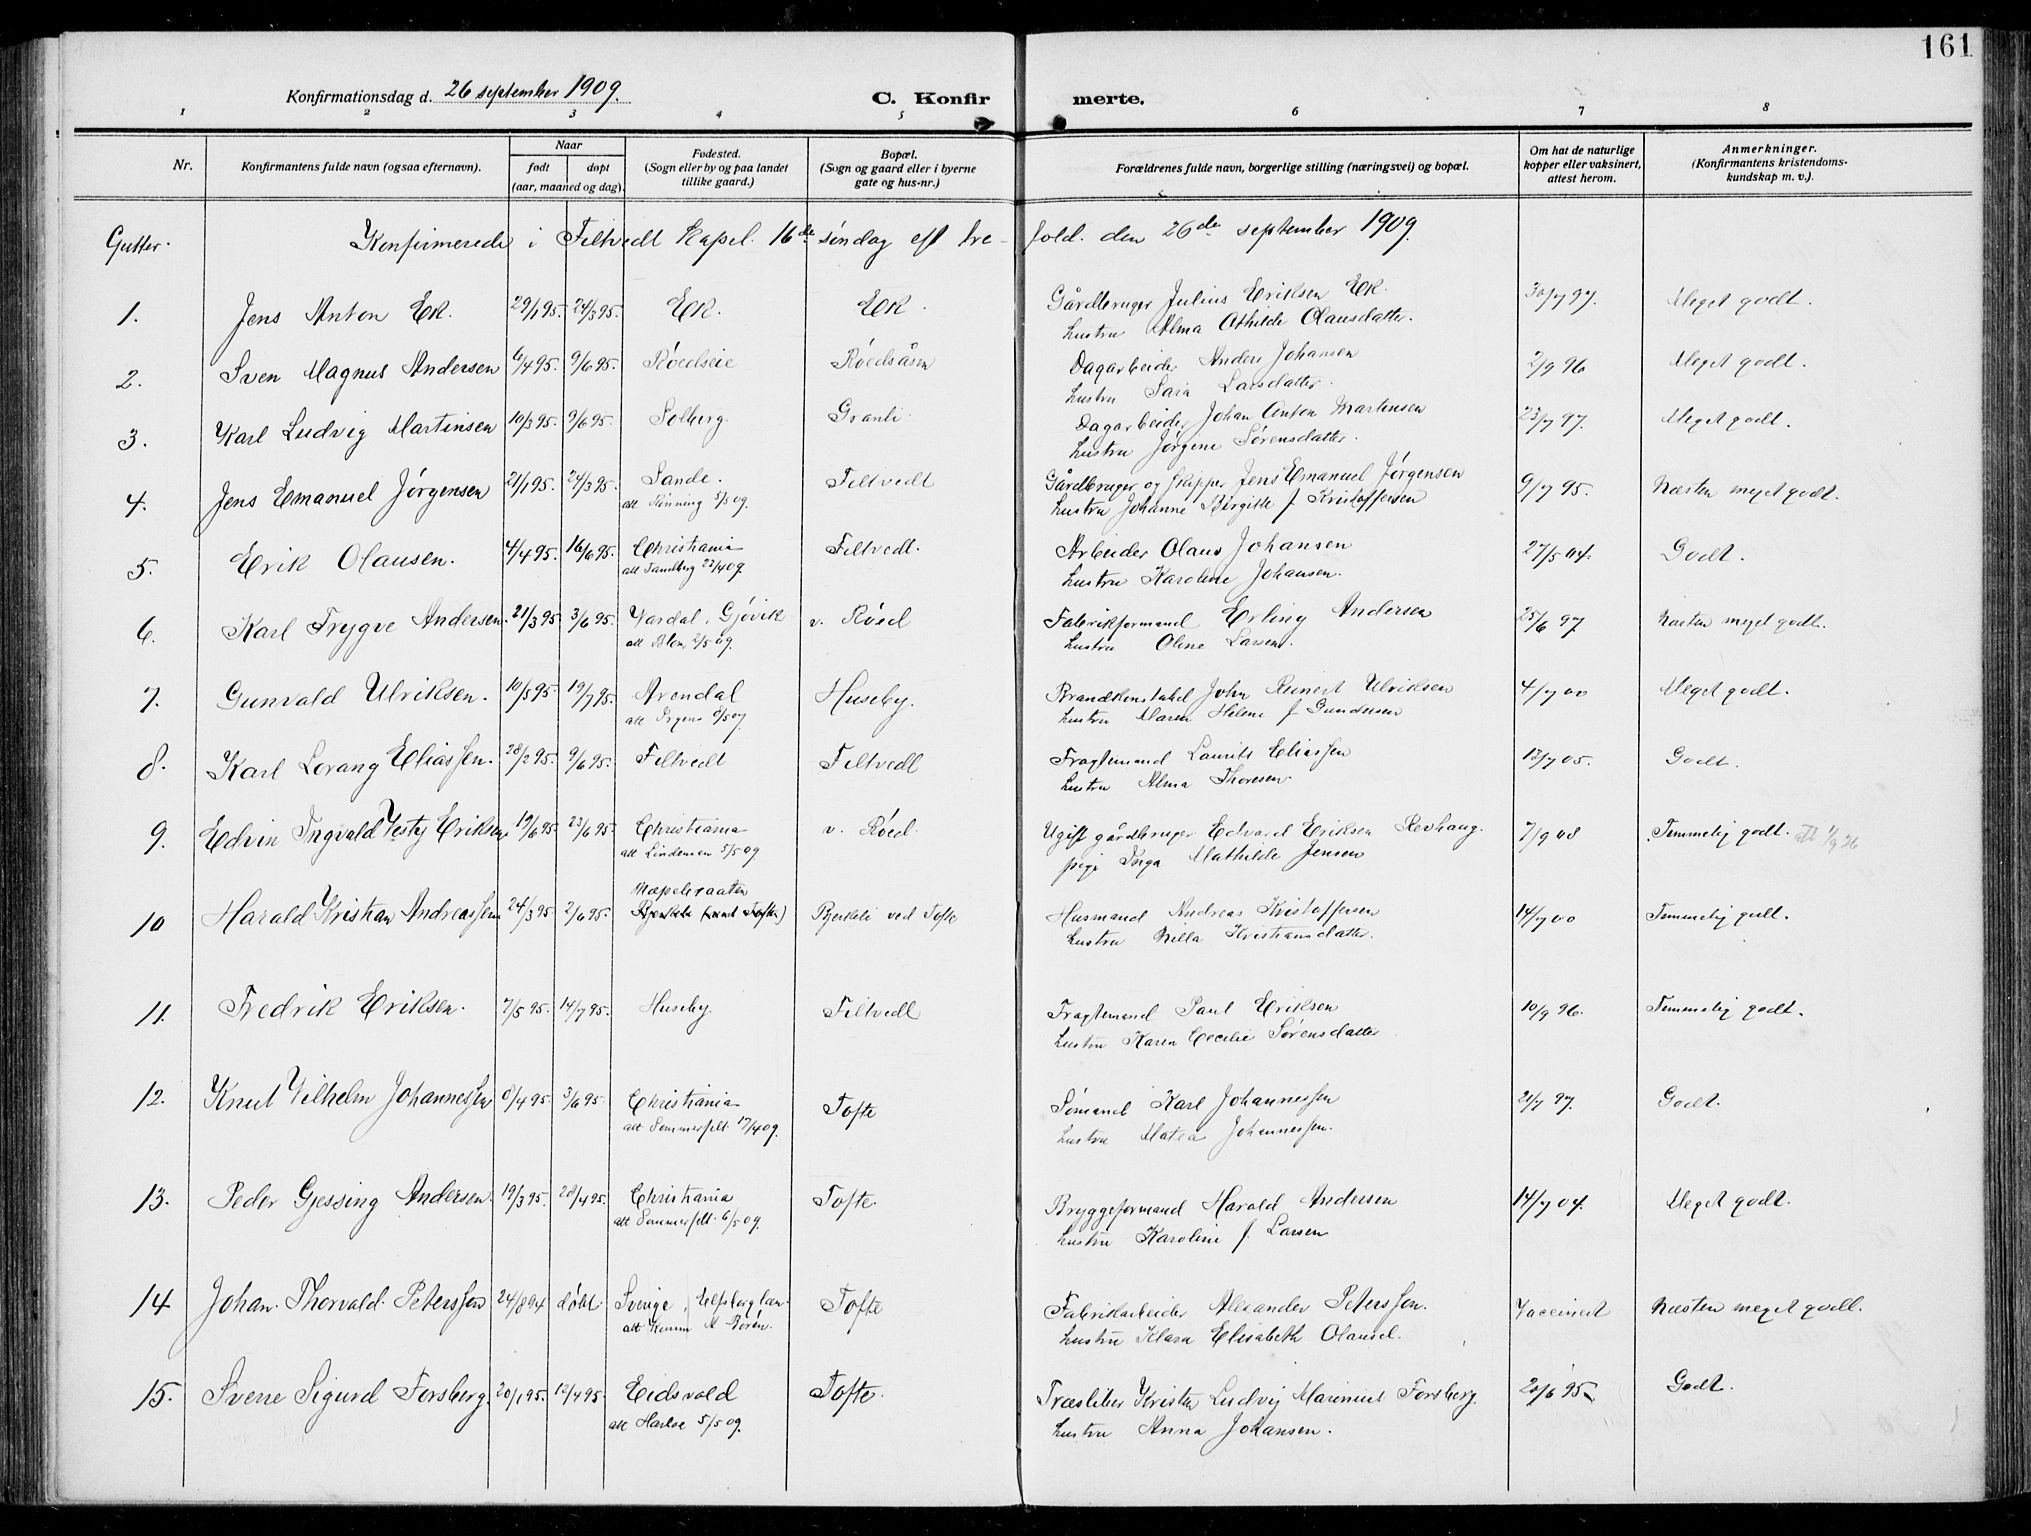 161
Konfirmationsdag d. 26 september 1909.
C. Konfirmerte.
1 2 3 4 5 6 7 8
Nr.
Konfirmantens fulde navn (ogsaa efternavn).
Naar
født døpt
(aar, maaned og dag).
Fødested.
(Sogn eller by og paa landet
tillike gaard.)
Bopæl.
(Sogn og gaard eller i byerne
gate og hus-nr.)
Forældrenes fulde navn, borgerlige stilling (næringsvei) og bopæl.
Om hat de naturlige
kopper eller vaksinert,
attest herom.
Anmerkninger.
(Konfirmantens kristendoms-
kundskap m. v.).
Gutter. Konfirmerede i Filtvedt Kapel. 16de søndag eft tre- fold. den 26de september 1909.
1. Jens Anton Ek. 29/1 95. 24/3 95. Ek. Ek. Gårdbruger Julius Eriksen Ek. 30/7 97. Meget godt.
hustru Alma Othilde Olausdatter.
2. Sven Magnus Andersen 6/4 95. 9/6 95. Røedseie Røedsåsen Dagarbeider Anders Johansen 2/9 96 Meget godt.
hustru Sara Larsdatter.
3. Karl Ludvig Martinsen 10/3 95. 9/6 95. Solberg. Granli. Dagarbeider Johan Anton Martinsen 23/7 97. Meget godt.
hustru Jørgine Sørensdatter.
4. Jens Emanuel Jørgensen 21/1 95. 24/3 95. Sande. Filtvedt Gårdbruger og skipper Jens Emanuel Jørgensen 9/7 95. Næsten meget godt.
att Rønning 5/5 09. hustru Johanne Birgitte f. Kristoffersen
5. Erik Olausen. 4/4 95. 16/6 95. Christiania Filtvedt. Arbeider Olaus Johansen 27/5 04. Godt.
att Tandberg 23/4 09. hustru Karoline Johansen.
6. Karl Trygve Andersen. 21/3 95. 3/6 95. Vardal, Gjøvik v. Røed Fabrikformand Erling Andersen 25/6 97 Næsten meget godt.
att 2/5 09. hustru Oline Larsen.
7. Gunvald Ulriksen. 10/5 95. 19/7 95. Arendal Huseby. Brandkonstabel John Reinert Ulriksen 4/7 00 Meget godt.
att 8/5 09 hustru Maren Helene f. Gundersen
8. Karl Lorang Eliassen. 28/2 95. 9/6 95. Filtvedt Filtvedt Fragtemand Laurits Eliassen 13/7 05. Godt.
hustru Alma Thoresen.
9. Edvin Ingvald Vestby Eriksen 19/6 95. 23/6 95. Christiania v. Røed. Ugift gårdbruger Edvard Eriksen Revhaug. 7/9 08 Temmelig godt. att 1/9 26
att Lindeman 5/5 09 pige Inga Mathilde Jensen
10 Harald Kristian Andreassen 24/3 95. 2/6 95. Mæpelsraaten Bjerkeli ved Tofte Husmand Andreas Kristoffersen 14/7 00 Temmelig godt.
Bjerkeli (ved Tofte) hustru Nilla Kristiansdatter.
11. Fredrik Eriksen. 7/5 95. 14/7 95. Huseby. Filtvedt Fragtemand Paul Eriksen 10/9 96. Temmelig godt.
hustru Karen Cecilie Sørensdatter
12. Knut Vilhelm Johannessen 8/4 95. 3/6 95. Christiania Tofte Sømand Karl Johannessen 21/7 97. Godt.
att Sommerfelt 17/4 09. hustru Matea Johannessen.
13. Peder Gjessing Andersen 19/3 95. 20/4 95. Christiania Tofte. Bryggeformand Harald Andersen 14/7 04. Meget godt.
att Sommerfelt. 6/5 09. hustru Karoline f. Larsen
14 Johan. Thorvald. Peterssen 24/8 94 døbt. Sverige, Elfsborg læn Tofte Fabrikarbeider Alexander Peterssen. Vaccinert Næsten meget godt.
att Komm A Borén. hustru Klara Elisabeth Olausd.
15. Sverre Sigurd Forsberg. 20/1 95. 12/4 95. Eidsvold Tofte. Træsliber Kristen Ludvig Marinius Forsberg. 20/6 95. Godt.
att Harloe 5/5 09. hustru Anna Johansen.